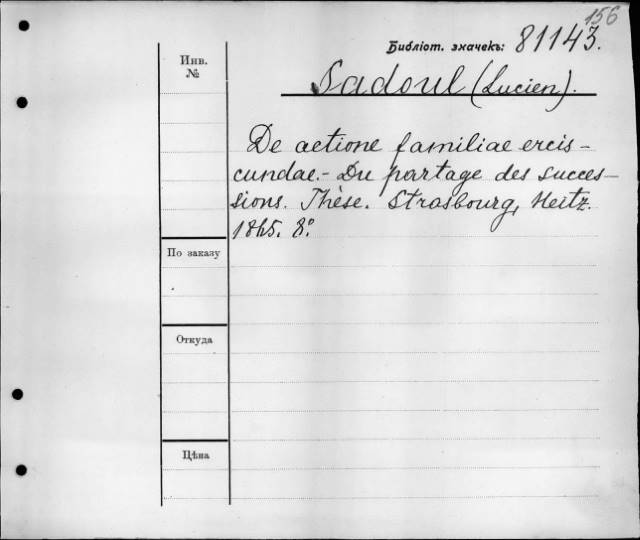 156
Библіот. значекъ: 81143.
Инв.
№
Sadoul (Lucien).
De actione familiae ercis-
cundae.- Du partage des succes-
sions. Thèse. Strasbourg, Heitz.
1865. 8º
По заказу
Откуда
Цѣна